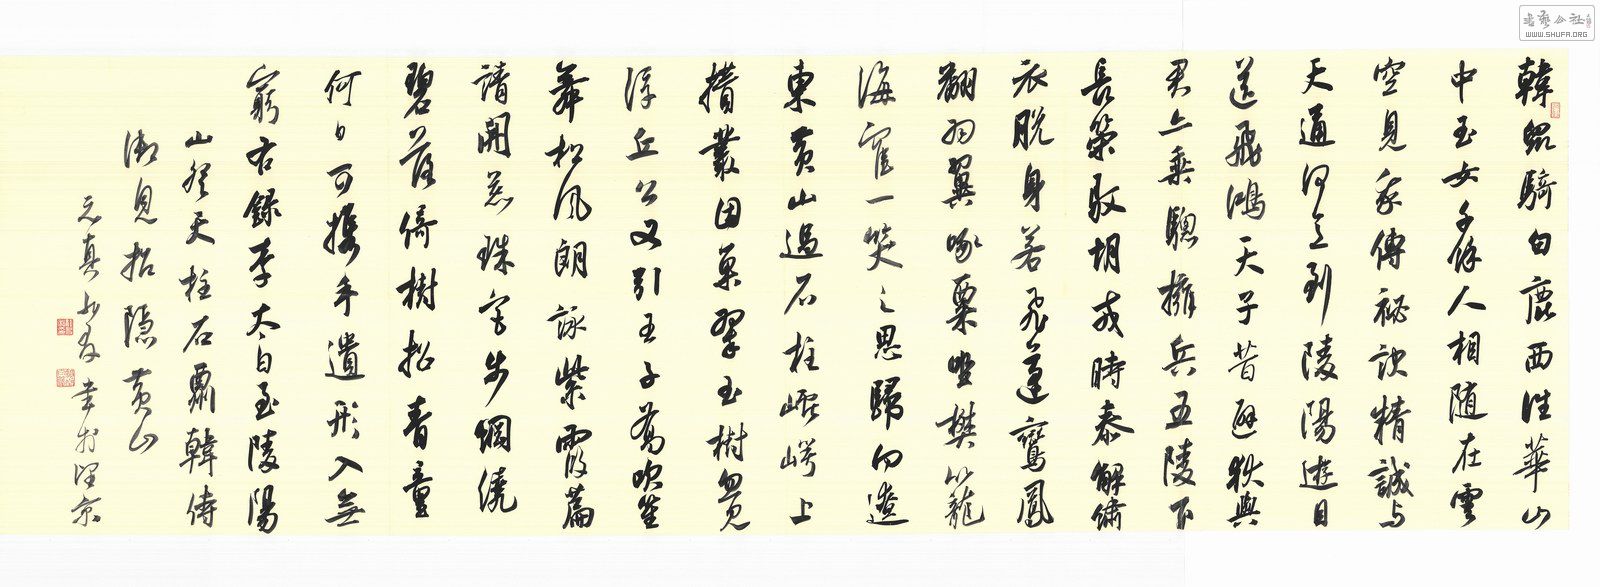 韓眾騎白鹿西往華山
中玉女千餘人相隨在雲
空見我傳祕訣精誠與
天通何意到陵陽遊目
送飛鴻天子昔避狄與
君亦乘驄擁兵五陵下
長策馭胡戎時泰解繡
衣脫身若飛蓬鸞鳳
翻羽翼啄粟坐樊籠
海隺一笑之思歸向遼
東黃山過石柱巘崿上
攢叢因巢翠玉樹忽見
浮丘公又引王子喬吹笙
舞松風朗詠紫霞篇
請開蕊珠宮步綱繞
碧落倚樹招青童
何日可攜手遺形入無
窮右錄李太白至陵陽
山登天柱石酬韓侍
御見招隱黃山
元真書於望京
書藝公社
WWW.SHUFA.ORG